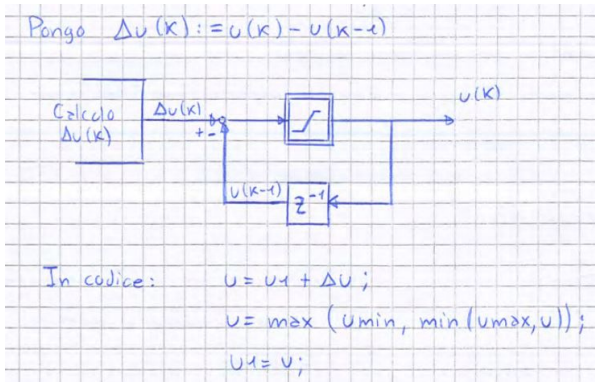 Pongo Δu(k) := u(k) - u(k-1)
u(k)
Calcolo Δu(k)
Δu(k)
+ -
u(k-1)
z⁻¹
In codice: u = u1 + Δu;
u = max (umin, min(umax,u));
u1 = u;